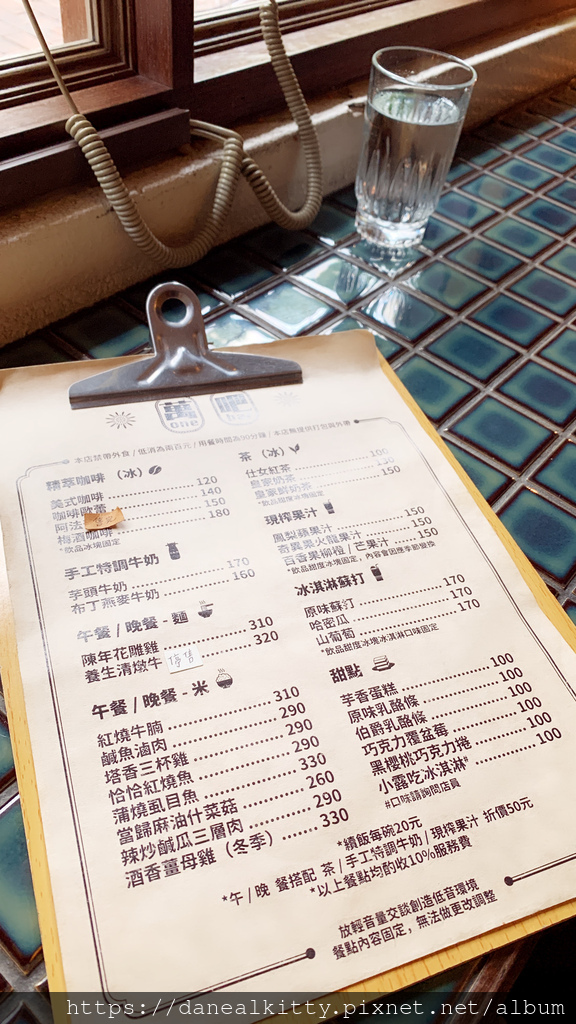 本店禁帶外食 / 低消為兩百元 / 用餐時間為90分鐘 / 本店無提供打包與外帶
精萃咖啡 (冰)
美式咖啡 120
咖啡歐蕾 140
阿法 150
梅酒咖啡 180
*飲品冰塊固定
手工特調牛奶
芋頭牛奶 170
布丁燕麥牛奶 160
午餐 / 晚餐 - 麵
陳年花雕雞 310
養生清燉牛 停售 320
午餐 / 晚餐 - 米
紅燒牛腩 310
鹹魚滷肉 290
塔香三杯雞 290
恰恰紅燒魚 290
蒲燒虱目魚 330
當歸麻油什菜菇 260
辣炒鹹瓜三層肉 290
酒香薑母雞 (冬季) 330
茶 (冰)
仕女紅茶 100
皇家奶茶
皇室鮮奶茶 150
現搾果汁
鳳梨蘋果汁 150
奇異果火龍果汁 150
百香果柳橙 / 芒果汁 150
*飲品甜度冰塊固定，內容會因應季節變換
冰淇淋蘇打
原味蘇打 170
哈密瓜 170
山葡萄 170
*飲品甜度冰塊冰淇淋口味固定
甜點
芋香蛋糕 100
原味乳酪條 100
伯爵乳酪條 100
巧克力覆盆莓 100
黑櫻桃巧克力捲 100
小露吃冰淇淋# 100
#口味請詢問店員
*續飯每碗20元
*午 / 晚 餐搭配 茶 / 手工特調牛奶 / 現搾果汁 折價50元
*以上餐點均酌收10%服務費
放輕音量交談創造低音環境
餐點內容固定，無法做更改調整
https://danealkitty.pixnet.net/album